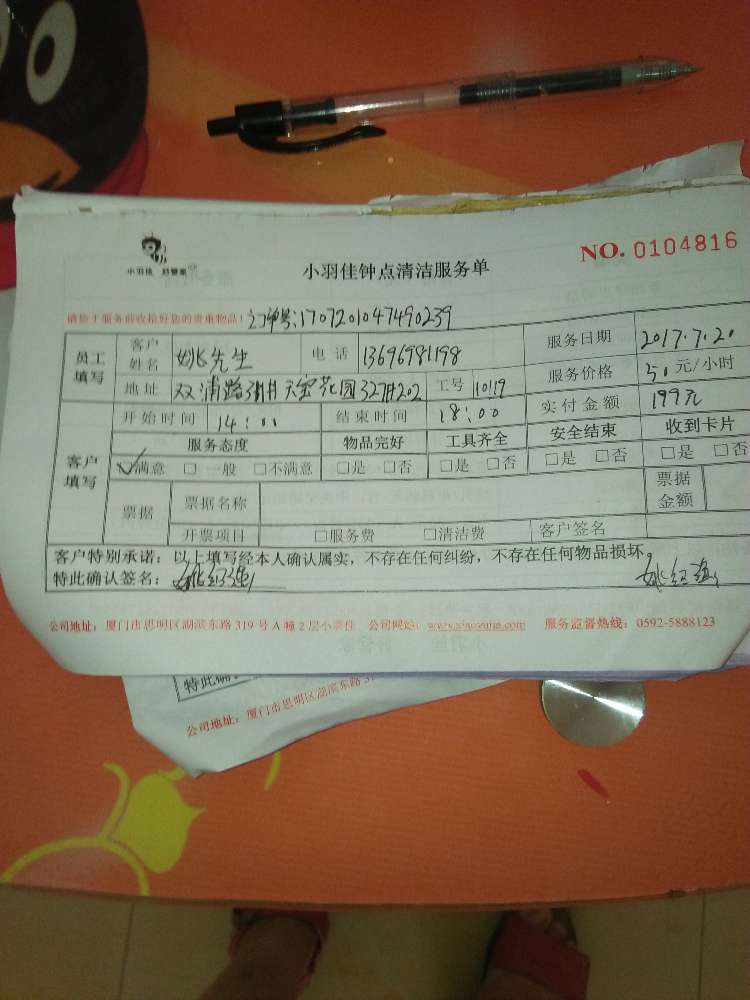 小羽佳 好管家
小羽佳钟点清洁服务单
NO. 0104816
请您于服务前收拾好您的贵重物品! 订单号:1707201047490239
员工填写 客户姓名 姚先生 电话 13696981198 服务日期 2017.7.20
地址 双浦路 天宝花园 202 工号 10119 服务价格 50 元/小时
开始时间 14:00 结束时间 18:00 实付金额 199元
客户填写 服务态度 物品完好 工具齐全 安全结束 收到卡片
☑满意 □ 一般 □不满意 □是 □否 □是 □否 □是 □否 □是 □否
票据 票据名称 票据金额
开票项目 □服务费 □清洁费 客户签名
客户特别承诺:以上填写经本人确认属实,不存在任何纠纷,不存在任何物品损坏。
特此确认签名:
公司地址:厦门市思明区湖滨东路 319 号 A 幢 2 层小羽佳 公司网站:www.xiaoyujia.com 服务监督热线:0592-5888123
特此确
公司地址:厦门市思明区湖滨东路 3